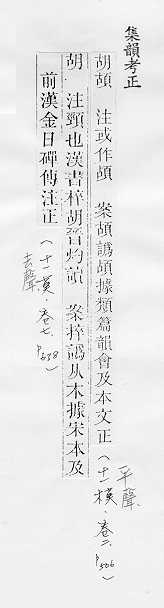 集韻考正
胡頶　注或作頶　案頶譌頶據類篇韻會及本文正（十一模．卷二 p566
平聲
胡　注頸也漢書捽胡晉灼讀　案捽譌从木據宋本及
前漢金日磾傳注正（十一莫．卷七 p638
去聲